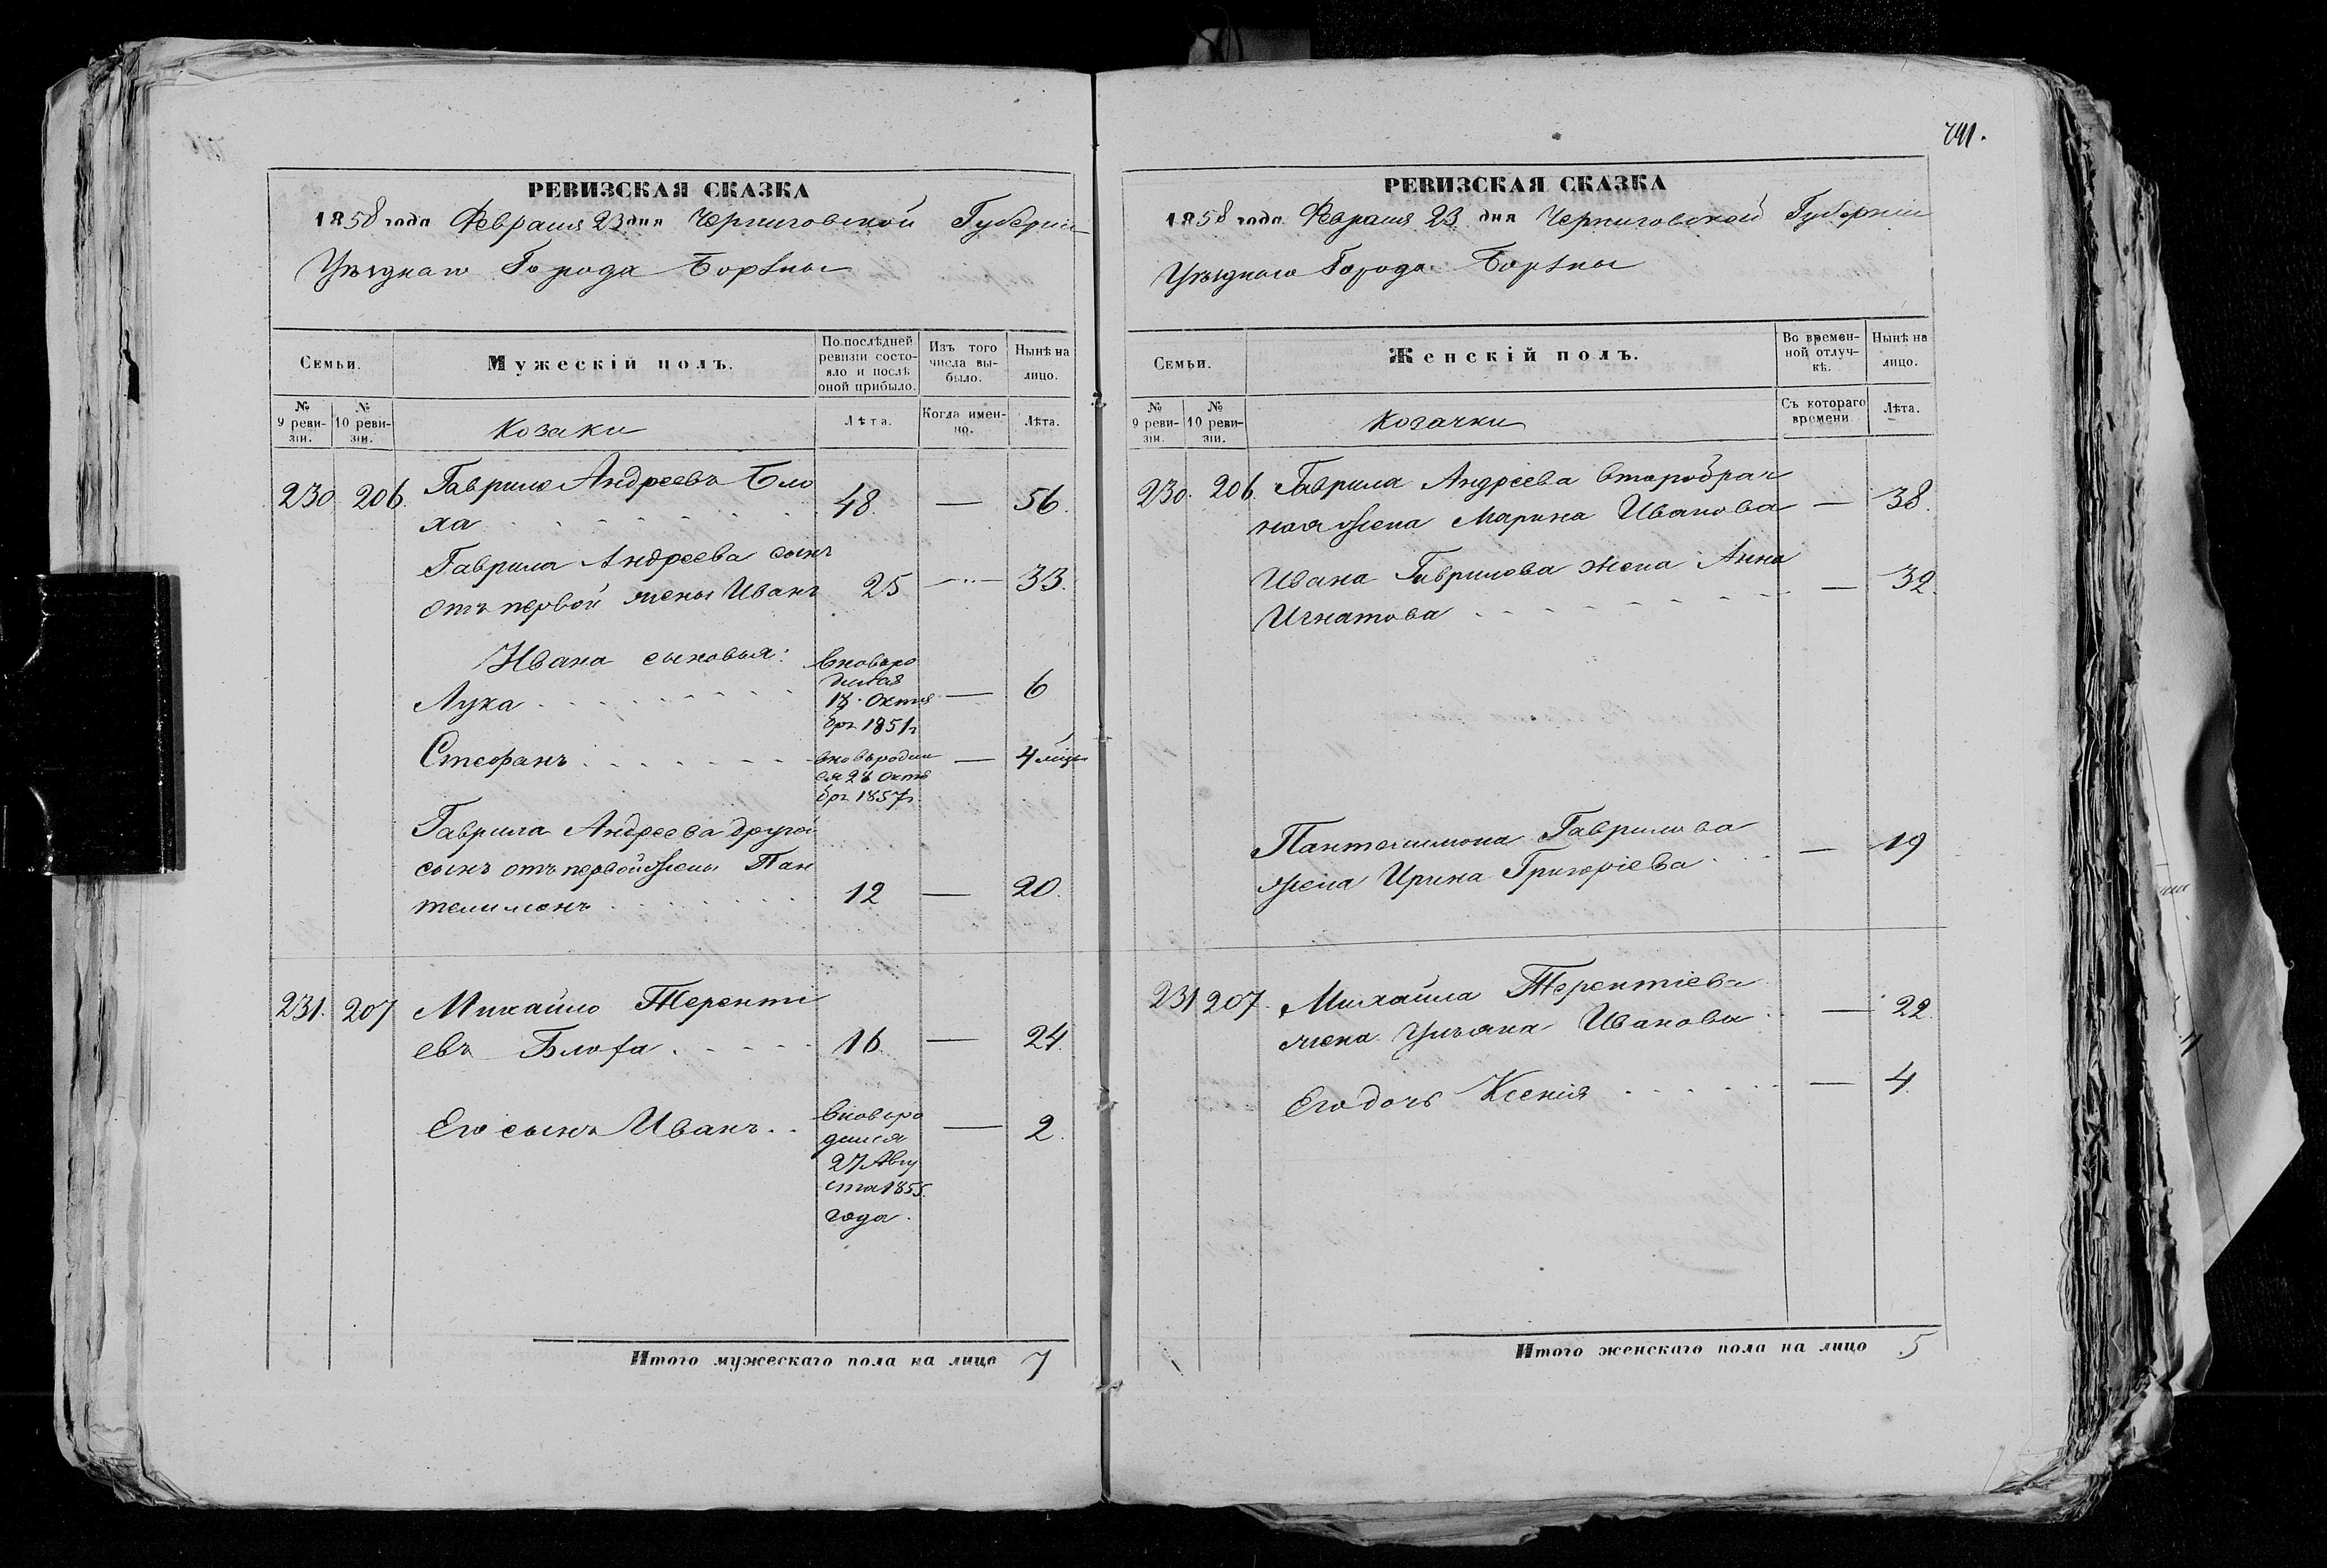 741.
РЕВИЗСКАЯ СКАЗКА
1858 года Февраля 23 дня Черниговской Губерніи
Уѣзднаго Города Борзны
Семьи.
Мужескій полъ.
По послѣдней ревизіи состояло и послѣ оной прибыло.
Изъ того числа выбыло.
Нынѣ на лицо.
№ 9 ревизіи.
№ 10 ревизіи.
Козаки
Лѣта.
Когда именно.
Лѣта.
230 206. Гаврило Андреевъ Бло
ха 48. — 56.
Гаврила Андреева сынъ
отъ первой жены Иванъ 25 — 33.
Ивана сыновья:
Лука
вновьро
дился
18 Октя
бря 1851г
— 6
Стефанъ
вновьродил
ся 28 Октя
бря 1857г.
— 4 мѣся
Гаврила Андреева другой
сынъ отъ первой жены Пан
телимонъ 12 — 20.
231. 207 Михайло Теренті
евъ Блоха 16. — 24.
Его сынъ Иванъ
вновьро
дился
27 Авгу
ста 1855.
года.
— 2.
Итого мужескаго пола на лицо 7
РЕВИЗСКАЯ СКАЗКА
1858 года Февраля 23 дня Черниговской Губерніи
Уѣзднаго Города Борзны
Семьи.
Женскій полъ.
Во временной отлучкѣ.
Нынѣ на лицо.
№ 9 ревизіи.
№ 10 ревизіи.
Козачки
Съ котораго времени
Лѣта.
230. 206. Гаврила Андреева второбрач
ная жена Марина Иванова — 38.
Ивана Гаврилова жена Анна
Игнатова — 32.
Пантелимона Гаврилова
жена Ирина Григоріева — 19
231 207. Михайла Терентіева
жена Ульяна Иванова — 22.
Его дочь Ксенія — 4.
Итого женскаго пола на лицо 5